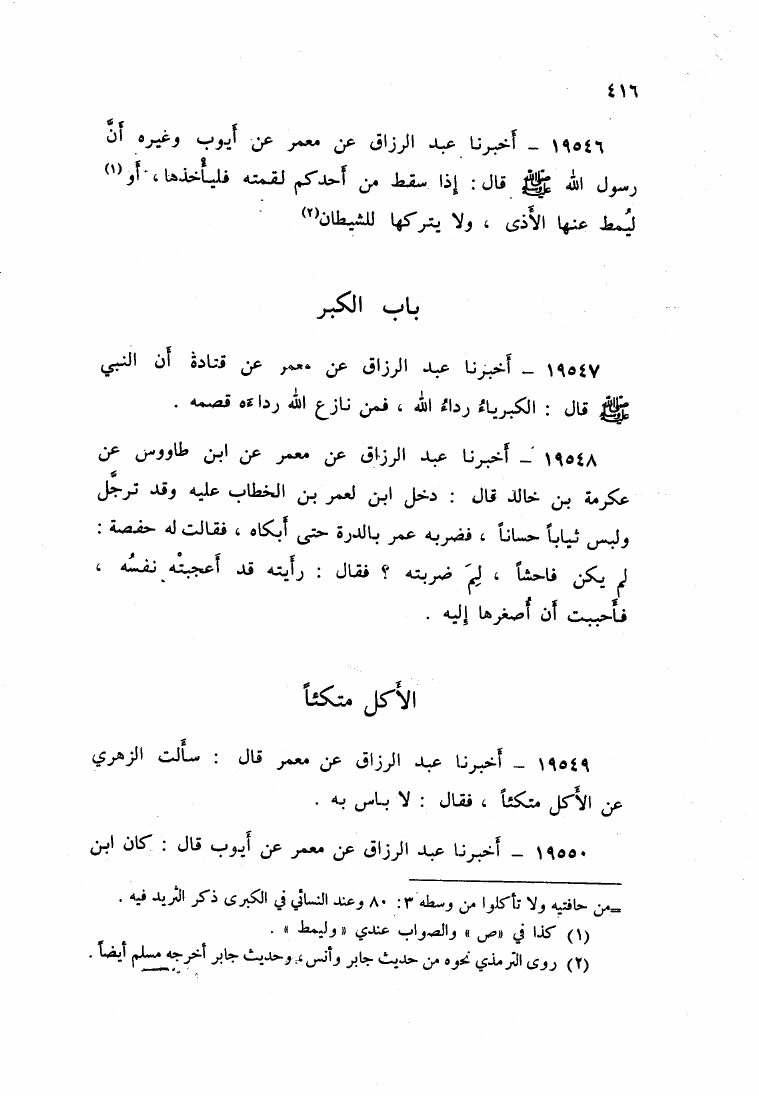 ٤١٦
١٩٥٤٦ – أخبرنا عبد الرزاق عن معمر عن أيوب وغيره أنَّ
رسول الله ﷺ قال : إذا سقط من أحدكم لقمته فليأْخذها ، أو(١)
ليُمط عنها الأَذى ، ولا يتركها للشيطان(٢)
باب الكبر
١٩٥٤٧ – أَخبرنا عبد الرزاق عن معمر عن قتادة أن النبي
ﷺ قال : الكبرياءُ رداءُ الله ، فمن نازع الله رداءَه قصمه .
١٩٥٤٨ – أَخبرنا عبد الرزاق عن معمر عن ابن طاووس عن
عكرمة بن خالد قال : دخل ابن لعمر بن الخطاب عليه وقد ترجَّل
ولبس ثياباً حساناً ، فضربه عمر بالدرة حتى أَبكاه ، فقالت له حفصة :
لم يكن فاحشاً ، لِمَ ضربته ؟ فقال : رأَيته قد أَعجبتْه نفسُه ،
فأَحببت أَن أُصغرها إليه .
الأَكل متكئاً
١٩٥٤٩ – أَخبرنا عبد الرزاق عن معمر قال : سأَلت الزهري
عن الأَكل متكئاً ، فقال : لا باس به .
١٩٥٥٠ – أَخبرنا عبد الرزاق عن معمر عن أَيوب قال : كان ابن
=من حافتيه ولا تأكلوا من وسطه ٣ : ٨٠ وعند النسائي في الكبرى ذكر الثريد فيه .
(١) كذا في «ص» والصواب عندي «وليمط» .
(٢) روى الترمذي نحوه من حديث جابر وأنس، وحديث جابر أخرجه مسلم أيضاً .